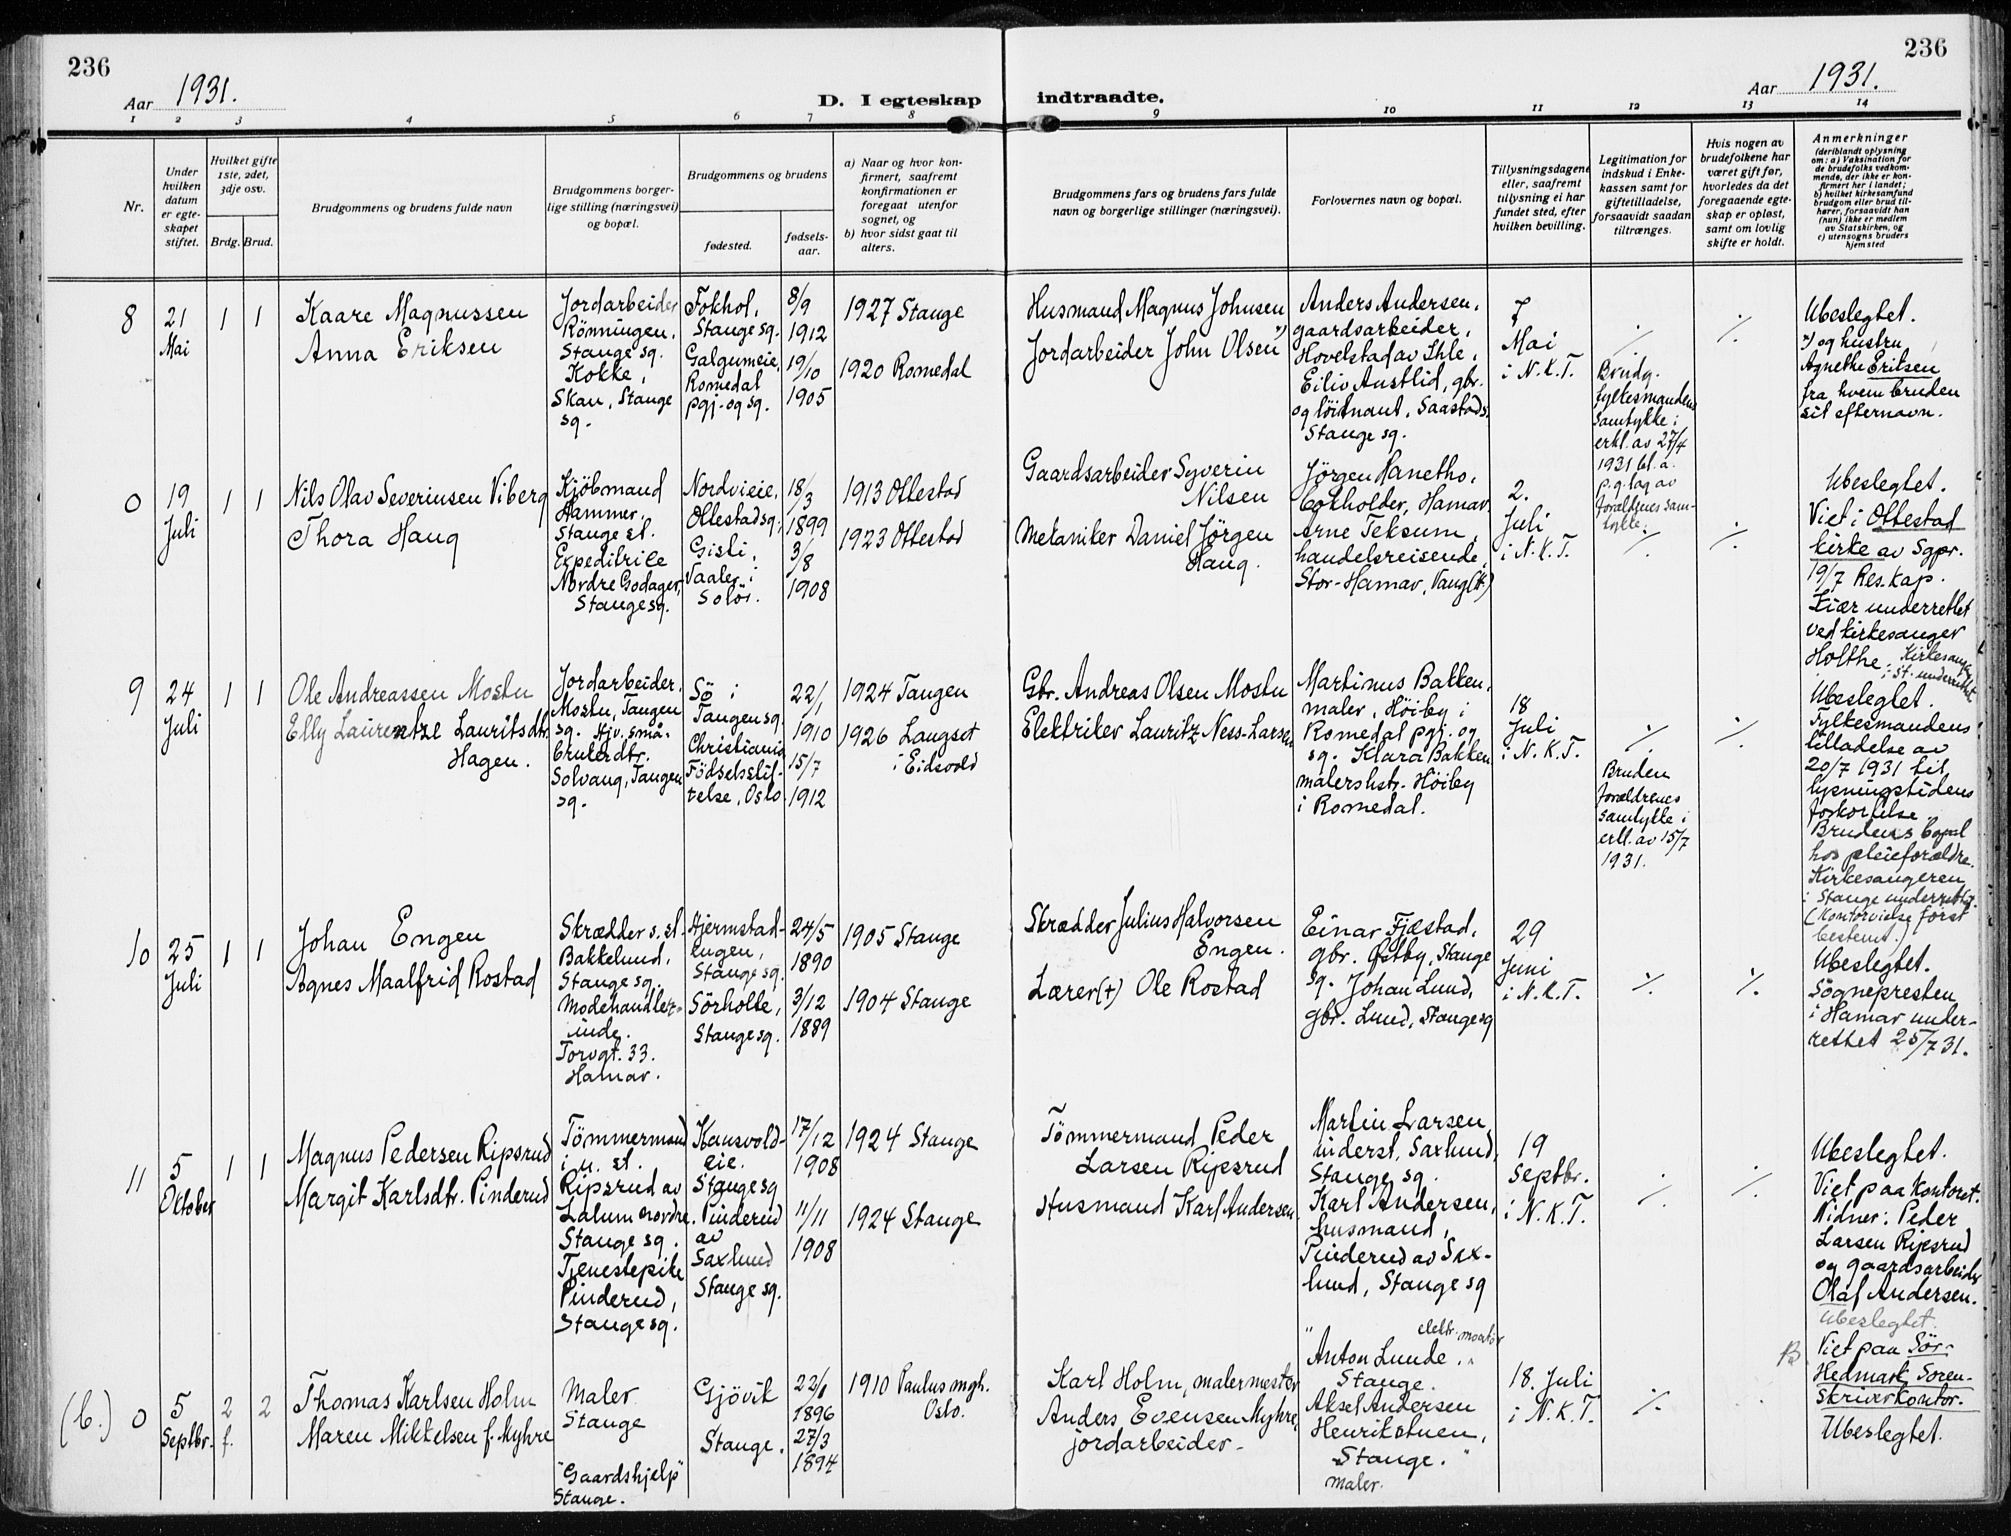 236
236
Aar 1931.
D. I egteskap indtraadte.
Aar 1931.
1 2 3 4 5 6 7 8 9 10 11 12 13 14
Nr.
Under hvilken datum er egteskapet stiftet.
Hvilket gifte 1ste, 2det, 3dje osv.
Brdg. Brud.
Brudgommens og brudens fulde navn
Brudgommens borgerlige stilling (næringsvei) og bopæl.
Brudgommens og brudens
fødested.
fødselsaar.
a) Naar og hvor konfirmert, saafremt konfirmationen er foregaat utenfor sognet, og
b) hvor sidst gaat til alters.
Brudgommens fars og brudens fars fulde navn og borgerlige stillinger (næringsvei).
Forlovernes navn og bopæl.
Tillysningsdagene eller, saafremt tillysning ei har fundet sted, efter hvilken bevilling.
Legitimation for indskud i Enkekassen samt for giftetilladelse, forsaavidt saadan tiltrænges.
Hvis nogen av brudefolkene har været gift før, hvorledes da det foregaaende egteskap er opløst, samt om lovlig skifte er holdt.
Anmerkninger
(deriblandt oplysning om: a) Vaksination for de brudefolks vedkommende, der ikke er konfirmert her i landet; b) hvilket kirkesamfund brudgom eller brud tilhører, forsaavidt han (hun) ikke er medlem av Statskirken, og c) utensogns bruders hjemsted
8
21
Mai
1 1
Kaare Magnussen
Anna Eriksen
Jordarbeider
Rönningen,
Stange sq.
Kokke,
Skau, Stange
sq.
Fokhol,
Stange sq.
Galgumeie,
Romedal
pgj. og sq.
8/9
1912
19/10
1905
1927 Stange
1920 Romedal
Husmand Magnus Johnsen
Jordarbeider John Olsen
Anders Andersen,
gaardsarbeider,
Hovelstad av Ihle,
Eiliv Austlid, gbr.
og löitnant, Saastad s.
Stange sq.
7
Mai
i N.K.T.
Brudg.
fylkesmandens
samtykke i
erkl. av 27/4
1931 bl.a.
p.g.lag av
forældrenes sam-
tykke.
Ubeslegtet.
og hustru
Agnethe Eriksen
fra hvem bruden
sit efternavn.
0
19
Juli
1 1
Nils Olav Severinsen Viberg
Thora Haug
Kjöbmand
Hammer,
Stange st.
Expeditrice
Nordre Godager,
Stange sq.
Nordvieie,
Ottestad sq.
Gisti,
Vaaler i
Solör.
18/3
1899
3/8
1908
1913 Ottestad
1923 Ottestad
Gaardsarbeider Syverin
Nilsen
Mekaniker Daniel Jørgen
Haug.
Jørgen Hanetho,
bokholder, Hamar.
Arne Teksum,
handelsreisende,
Stor-Hamar, Vang (H.)
2.
Juli
i N.K.T.
Ubeslegtet.
Viet i Ottestad
kirke av Sgpr.
19/7 Res. kap.
Liær underrettet
ved kirkesanger
Holthe. Kirkesanger
i St. underrettet
9
24
Juli
1 1
Ole Andreassen Mostu
Elly Laurentze Lauritsdtr.
Hagen.
Jordarbeider,
Mostu, Tangen
sq. Hjv. små-
brukerdtr.
Solvang, Tangen
sq.
Sö i
Tangen sq.
Christiania
Födselsstif-
telse, Oslo.
22/1
1910
15/7
1912
1924 Tangen
1926 Langset
i Eidsvold
Gbr. Andreas Olsen Mostu
Elektriker Lauritz Ness-Larsen
Martinus Bakken,
maler, Höiby i
Romedal pgj. og
sq. Klara Bakken
malershstr. Höiby
i Romedal.
18
Juli
i N.K.T.
Bruden
forældrenes
samtykke i
erkl. av 15/7
1931.
Ubeslegtet.
Fylkesmandens
tilladelse av
20/7 1931 til
lysningstidens
forkortelse.
Brudens bopæl
hos pleieforældre.
Kirkesangeren
i Stange underrettet.
(Kontorvielse först
bestemt.)
10
25
Juli
1 1
Johan Engen
Agnes Maalfrid Rostad
Skrædder s. st.
Bakkelund,
Stange sq.
Modehandler-
inde.
Torvgt. 33.
Hamar.
Hjermstad-
engen,
Stange sq.
Sörholte,
Stange sq.
24/5
1890
3/12
1889
1905 Stange
1904 Stange
Skrædder Julius Halvorsen
Engen.
Lærer (+) Ole Rostad
Einar Fjæstad,
gbr. Østby, Stange
sq. Johan Lund,
gbr. Lund, Stange sq
29
Juni
i N.K.T.
Ubeslegtet.
Sögnepresten
i Hamar under-
rettet 25/7 31.
11
5
Oktober
1 1
Magnus Pedersen Ripsrud
Margit Karlsdtr. Pinderud
Tömmermand
i u. st.
Ripsrud av
Lalum nordre
Stange sq.
Tjenestepike
Pinderud,
Stange sq.
Hansvold-
eie.
Stange sq
Pinderud
av
Saxlund
Stange sq.
17/12
1908
11/11
1908
1924 Stange
1924 Stange
Tömmermand Peder
Larsen Ripsrud
Husmand Karl Andersen
Martin Larsen
inderst, Saxlund,
Stange sq.
Karl Andersen,
husmand,
Pinderud av Sax-
lund, Stange sq
19
Septbr.
i N.K.T.
Ubeslegtet.
Viet paa kontoret.
Vidner: Peder
Larsen Ripsrud
og gaardsarbeider
Olaf Andersen.
(b.) 0
5
Septbr.
2 2
f.
Thomas Karlsen Holm
Maren Mikkelsen f. Myhre
Maler
Stange
"Gaardshjelp"
Stange.
Gjövik
Stange.
22/6
1896
27/3
1894
1910 Paulus mgh.
Oslo.
Karl Holm, malermester
Anders Evensen Myhre,
jordarbeider
elektr. montör
Anton Lunde
Stange.
Aksel Andersen
Henrikstuen,
Stange.
maler.
18. Juli
i N.K.T.
Ubeslegtet.
B
Viet paa Sör-
Hedmark Soren-
skriverkontor.
Ubeslegtet.